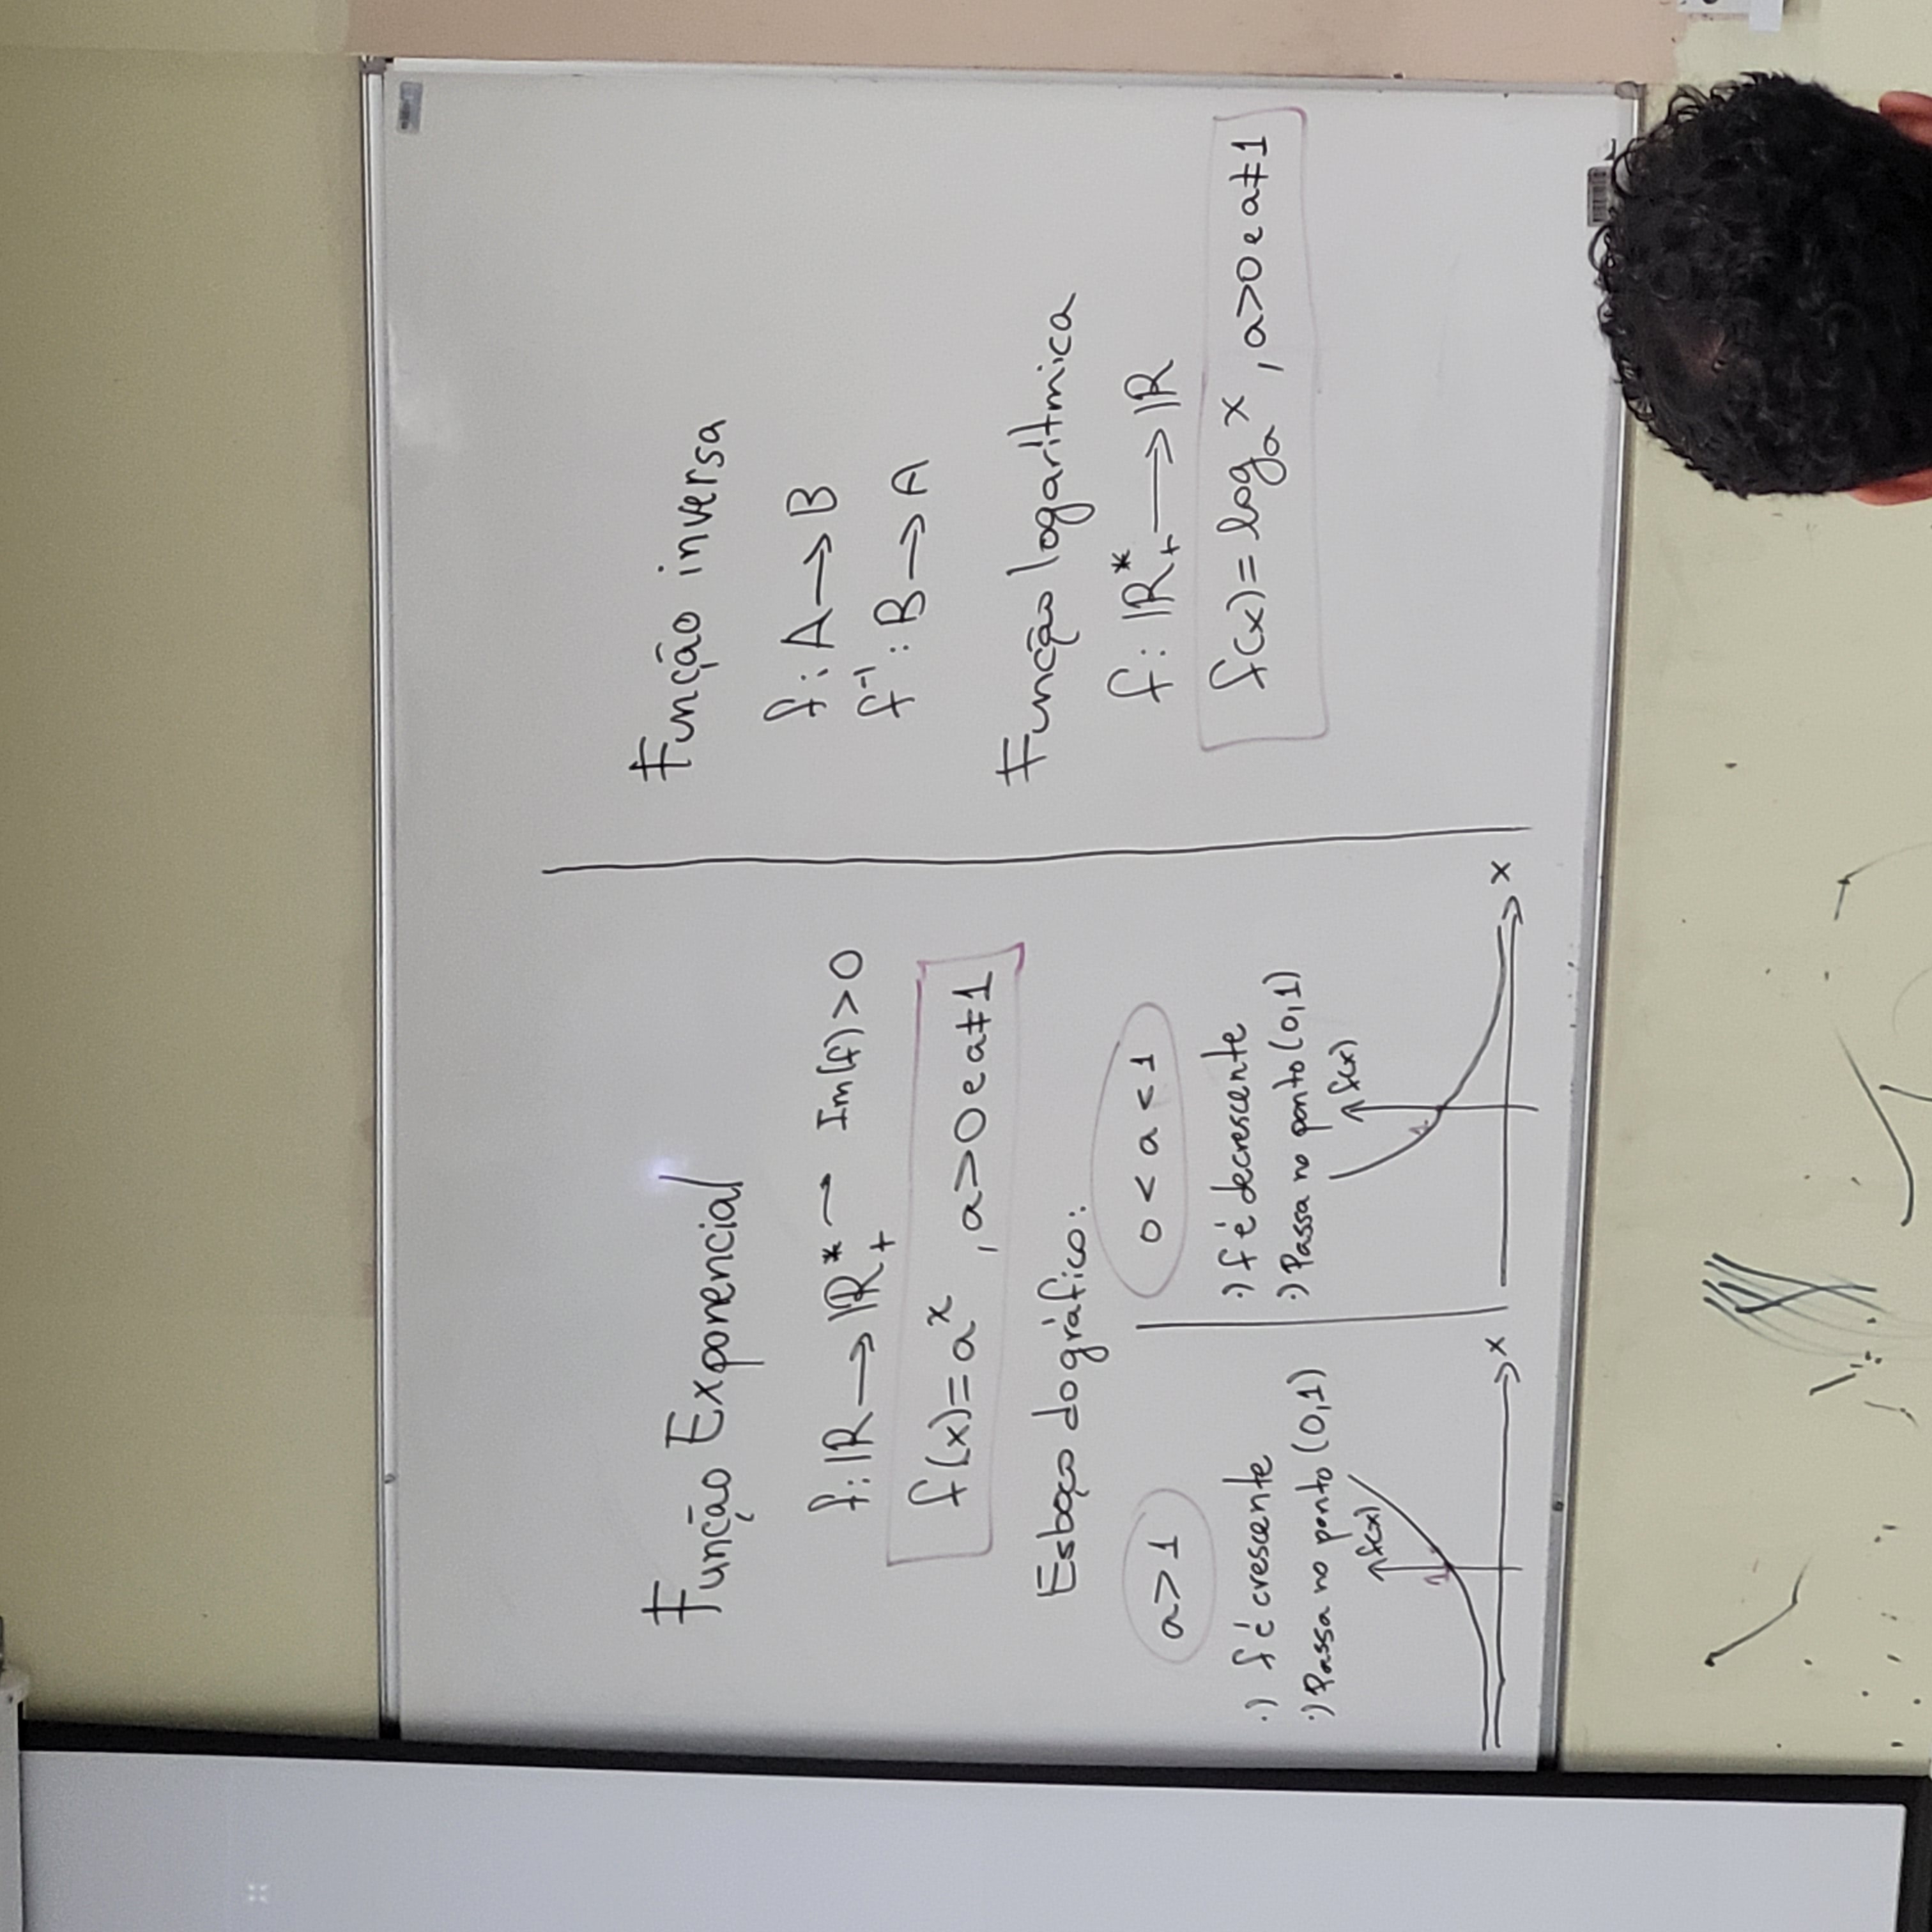 Função Exponencial
f: ℝ → ℝ*₊ → Im(f) > 0
f(x) = aˣ , a > 0 e a ≠ 1
Esboço do gráfico:
a > 1
·) f é crescente
·) Passa no ponto (0,1)
f(x)
1
x
0 < a < 1
·) f é decrescente
·) Passa no ponto (0,1)
f(x)
1
x
Função inversa
f: A → B
f⁻¹: B → A
Função logarítmica
f: ℝ*₊ → ℝ
f(x) = logₐ x , a > 0 e a ≠ 1